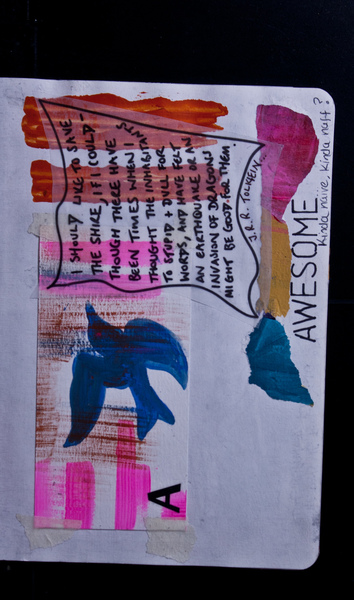 I SHOULD LIKE TO SAVE
THE SHIRE, IF I COULD -
THOUGH THERE HAVE
BEEN TIMES WHEN I
THOUGHT THE INHABITANTS
TO STUPID + DULL FOR
WORDS, AND HAVE FELT
AN EARTHQUAKE OR AN
INVASION OF DRAGONS
MIGHT BE GOOD FOR THEM.
J.R.R. TOLKEIN...
A
AWESOME
Kinda naive, kinda naff?